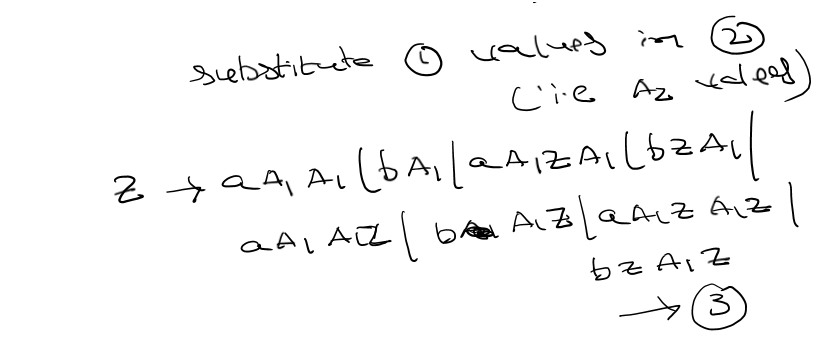 substitute ① values in ②
(i.e A₂ values)
Z → aA₁A₁|bA₁|aA₁ZA₁|bZA₁|
aA₁A₁Z|bA₁Z|aA₁ZA₁Z|
bZA₁Z
→ ③